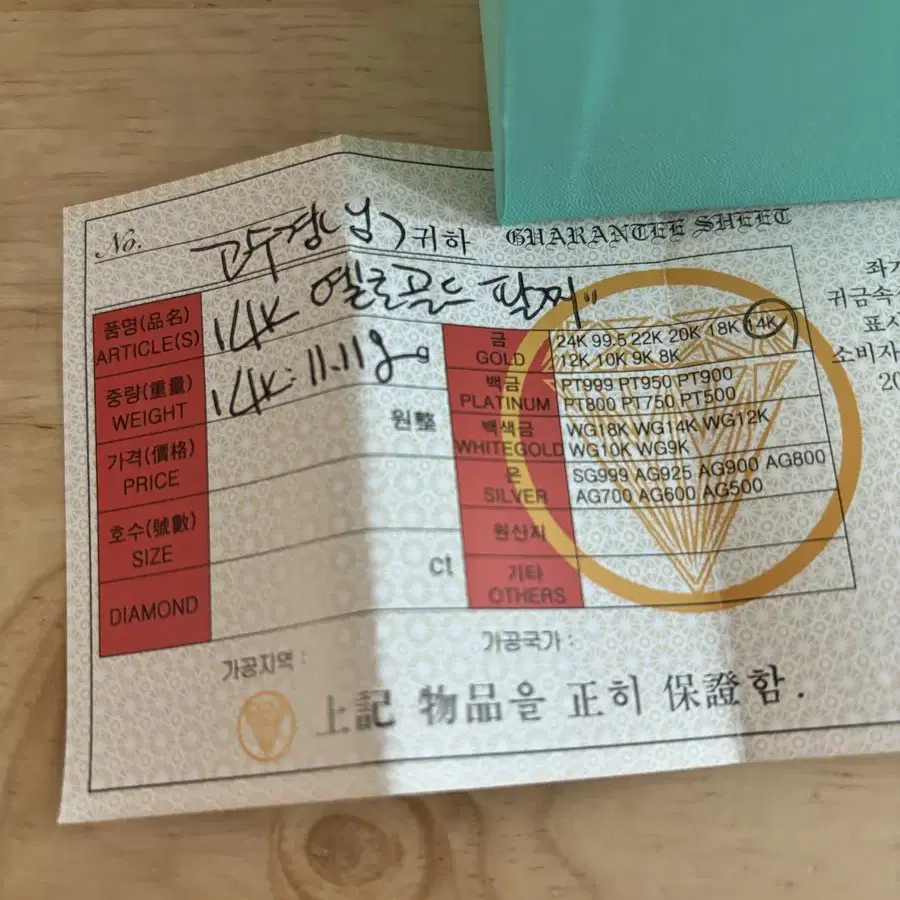 No. 고두경(님) 귀하 GUARANTEE SHEET
품명(品名)
ARTICLE(S)
14K 옐로골드 팔찌"
중량(重量)
WEIGHT
14K: 11.11g
가격(價格)
PRICE
원整
호수(號數)
SIZE
DIAMOND
ct
금
GOLD
24K 99.5 22K 20K 18K 14K
12K 10K 9K 8K
백금
PLATINUM
PT999 PT950 PT900
PT800 PT750 PT500
백색금
WHITEGOLD
WG18K WG14K WG12K
WG10K WG9K
은
SILVER
SG999 AG925 AG900 AG800
AG700 AG600 AG500
원산지
기타
OTHERS
가공지역 :
가공국가 :
上記 物品을 正히 保證함.
좌기
귀금속
표시
소비자
20